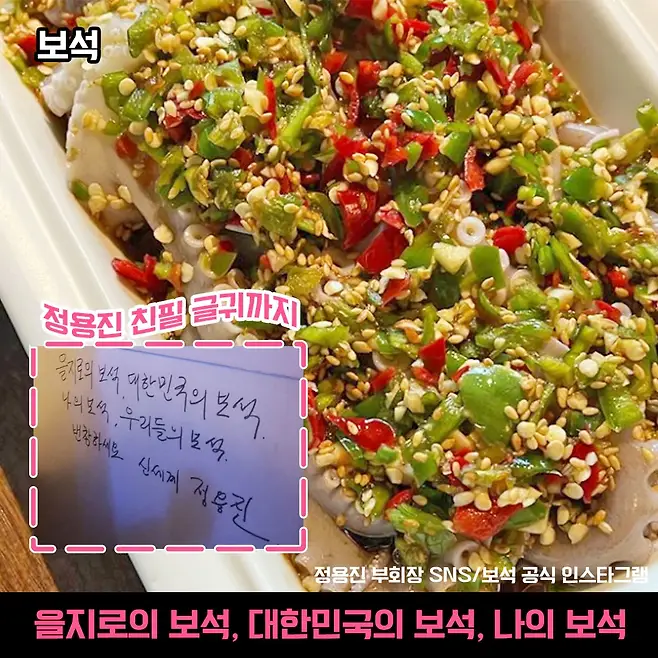 보석
정용진 친필 글귀까지
을지로의 보석, 대한민국의 보석.
나의 보석, 우리들의 보석.
번창하세요 신세계 정용진
정용진 부회장 SNS/보석 공식 인스타그램
을지로의 보석, 대한민국의 보석, 나의 보석